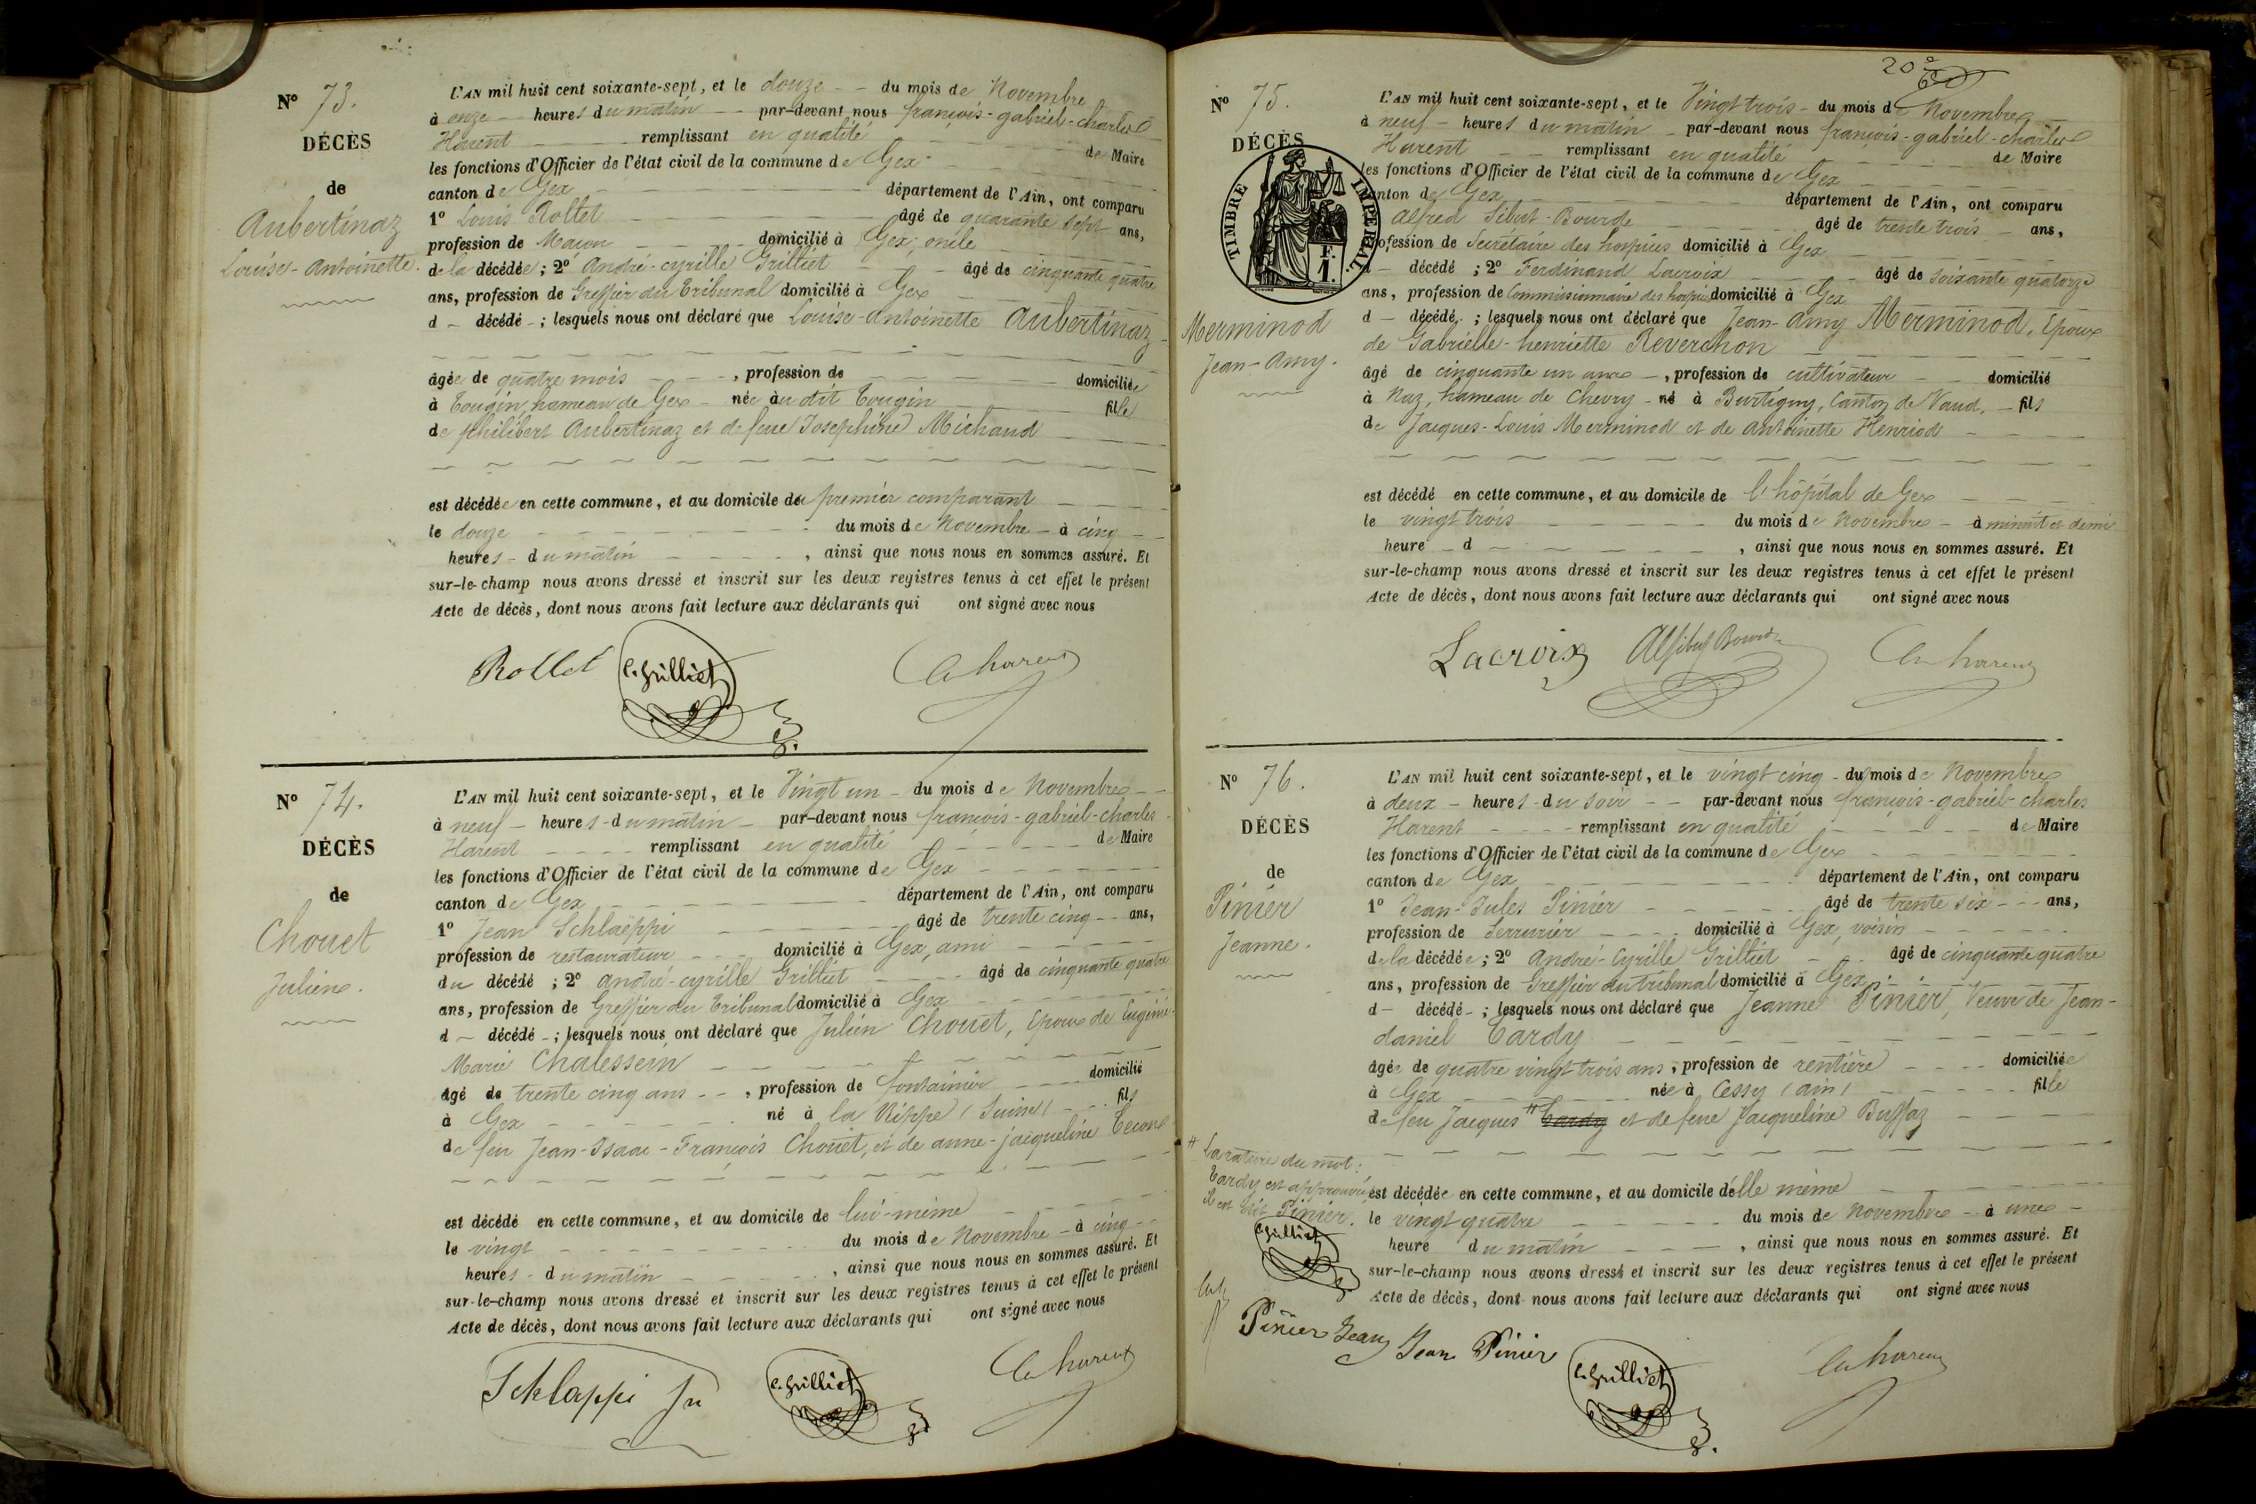 N° 73.
DÉCÈS
de
Aubertinaz
Louise-Antoinette.
L'AN mil huit cent soixante-sept, et le douze du mois de Novembre
à onze heures du matin par-devant nous françois-gabriel-charles
Harent remplissant en qualité de Maire
les fonctions d'Officier de l'état civil de la commune de Gex
canton de Gex département de l'Ain, ont comparu
1° Louis Rollet âgé de quarante sept ans,
profession de Maçon domicilié à Gex, oncle
de la décédée; 2° André-cyrille Grilliet âgé de cinquante quatre
ans, profession de Greffier du Tribunal domicilié à Gex
d décédé; lesquels nous ont déclaré que Louise-Antoinette Aubertinaz
âgée de quatre mois, profession de domiciliée
à Tougin, hameau de Gex née au dit Tougin fille
de philibert Aubertinaz et de feue Josephine Michaud
est décédée en cette commune, et au domicile du premier comparant
le douze du mois de Novembre à cinq
heures du matin, ainsi que nous nous en sommes assuré. Et
sur-le-champ nous avons dressé et inscrit sur les deux registres tenus à cet effet le présent
Acte de décès, dont nous avons fait lecture aux déclarants qui ont signé avec nous
Rollet C. Grilliet Ch harent
N° 74.
DÉCÈS
de
Chouet
Julien.
L'AN mil huit cent soixante-sept, et le Vingt un du mois de Novembre
à neuf heures du matin par-devant nous françois-gabriel-charles
Harent remplissant en qualité de Maire
les fonctions d'Officier de l'état civil de la commune de Gex
canton de Gex département de l'Ain, ont comparu
1° Jean Schlaëppi âgé de trente cinq ans,
profession de restaurateur domicilié à Gex, ami
du décédé; 2° André-cyrille Grilliet âgé de cinquante quatre
ans, profession de Greffier du Tribunal domicilié à Gex
d décédé; lesquels nous ont déclaré que Julien Chouet, Epoux de Eugénie-
Marie Chalessein
âgé de trente cinq ans, profession de fontainier domicilié
à Gex né à la Rippe (Suisse) fils
de feu Jean-Isaac-François Chouet, et de anne-jacqueline Tecon
est décédé en cette commune, et au domicile de lui-même
le vingt du mois de Novembre à cinq
heures du matin, ainsi que nous nous en sommes assuré. Et
sur-le-champ nous avons dressé et inscrit sur les deux registres tenus à cet effet le présent
Acte de décès, dont nous avons fait lecture aux déclarants qui ont signé avec nous
Schlappi Jn C. Grilliet Ch harent
20e
N° 75.
DÉCÈS
TIMBRE IMPERIAL.
F. 1.
Merminod
Jean-Amy.
L'AN mil huit cent soixante-sept, et le Vingt trois du mois d Novembre
à neuf heures du matin par-devant nous françois-gabriel-charles
Harent remplissant en qualité de Maire
les fonctions d'Officier de l'état civil de la commune de Gex
canton de Gex département de l'Ain, ont comparu
Alfred Sibut-Bourde âgé de trente trois ans,
profession de Secrétaire des hospices domicilié à Gex
d décédé; 2° Ferdinand Lacroix âgé de soixante quatorze
ans, profession de Commissionnaire des hospices domicilié à Gex
d décédé; lesquels nous ont déclaré que Jean-Amy Merminod, Epoux
de Gabrielle-henriette Reverchon
âgé de cinquante un ans, profession de cultivateur domicilié
à Naz, hameau de Chevry né à Burtigny, Canton de Vaud, fils
de Jacques-Louis Merminod et de Antoinette Henriod
est décédé en cette commune, et au domicile de l'hôpital de Gex
le vingt trois du mois de Novembre à minuit et demi
heure d, ainsi que nous nous en sommes assuré. Et
sur-le-champ nous avons dressé et inscrit sur les deux registres tenus à cet effet le présent
Acte de décès, dont nous avons fait lecture aux déclarants qui ont signé avec nous
Lacroix Al Sibut Bourde Ch harent
N° 76.
DÉCÈS
de
Pinier
Jeanne.
L'AN mil huit cent soixante-sept, et le vingt cinq du mois de Novembre
à deux heures du soir par-devant nous françois-gabriel-charles
Harent remplissant en qualité de Maire
les fonctions d'Officier de l'état civil de la commune de Gex
canton de Gex département de l'Ain, ont comparu
1° Jean-Jules Pinier âgé de trente six ans,
profession de Serrurier domicilié à Gex, voisin
de la décédée; 2° André-Cyrille Grilliet âgé de cinquante quatre
ans, profession de Greffier du tribunal domicilié à Gex
d décédé; lesquels nous ont déclaré que Jeanne Pinier, Veuve de Jean-
daniel Tardy
âgée de quatre vingt trois ans, profession de rentière domiciliée
à Gex née à Cessy (ain) fille
de feu Jacques # Tardy et de feue Jacqueline Buffaz
# La rature du mot:
Tardy est approuvée
il est dit Pinier.
C. Grilliet
est décédée en cette commune, et au domicile d'elle même
le vingt quatre du mois de Novembre à une
heure du matin, ainsi que nous nous en sommes assuré. Et
sur-le-champ nous avons dressé et inscrit sur les deux registres tenus à cet effet le présent
Acte de décès, dont nous avons fait lecture aux déclarants qui ont signé avec nous
Pinier Jean Jean Pinier C. Grilliet Ch harent